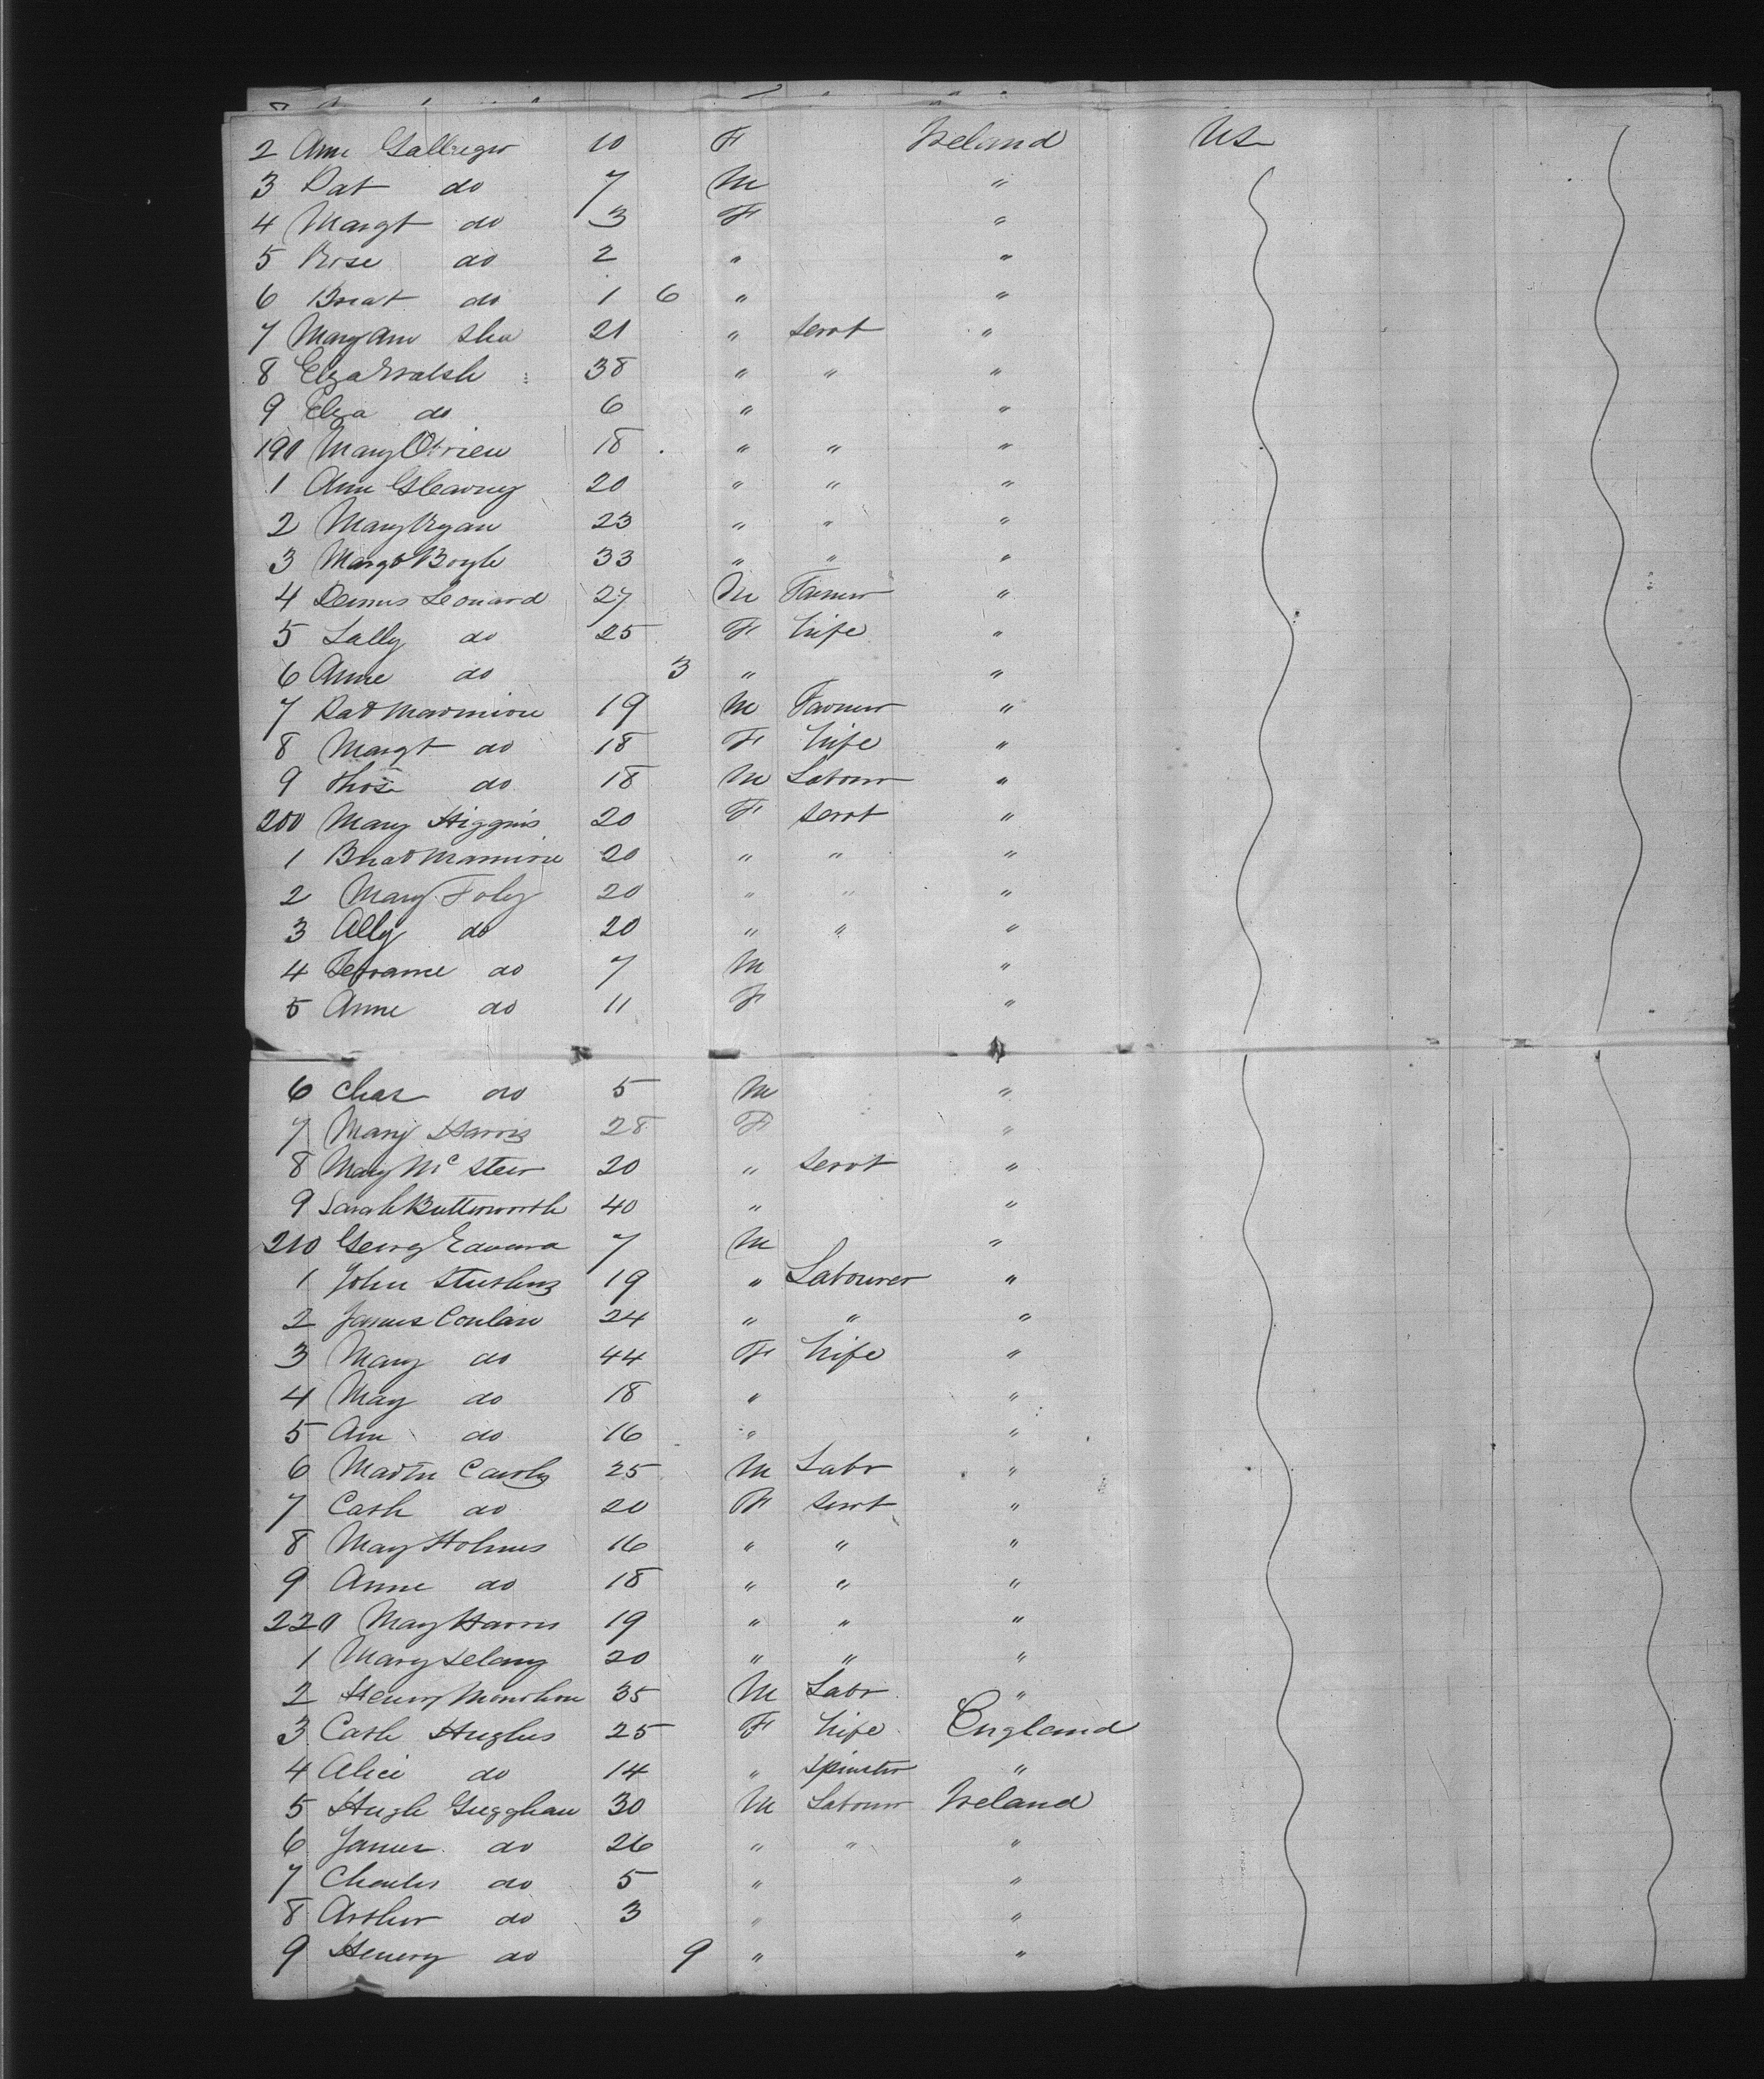 2 Ann Gallieger 10 F Ireland US
3 Pat do 7 M "
4 Margt do 3 F "
5 Rose do 2 " "
6 Bridt do 1 6 " "
7 Mary Ann Shea 21 " Servt "
8 Eliza Walsh 38 " " "
9 Eliza do 6 " "
190 Mary O'Brien 18 " " "
1 Ann 20 " " "
2 Mary Ryan 23 " " "
3 Margt Boyle 33 " " "
4 Dennis Leonard 27 M Farmer "
5 Sally do 25 F Wife "
6 Anne do 3 " "
7 Pat 19 M Farmer "
8 Margt do 18 F Wife "
9 Thos do 18 M Labour "
200 Mary Higgins 20 F Servt "
1 20 " " "
2 Mary Foley 20 " " "
3 Ally do 20 " " "
4 do 7 M "
5 Anne do 11 F "
6 Chas do 5 M "
7 Mary Harris 28 F "
8 Mary Mc Steer 20 " Servt "
9 Sarah Butterworth 40 " "
210 Georg Edward 7 M "
1 John 19 " Labourer "
2 James Conlan 24 " " "
3 Mary do 44 F Wife "
4 May do 18 " "
5 Ann do 16 " "
6 Martin 25 M Labr "
7 Cath do 20 F Servt "
8 May Holmes 16 " " "
9 Anne do 18 " " "
220 May Harris 19 " " "
1 Mary Delany 20 " " "
2 Henry 35 M Labr "
3 Cath Hughes 25 F Wife England
4 Alice do 14 " Spinster "
5 Hugh Gueghan 30 M Labour Ireland
6 James do 26 " " "
7 Charles do 5 " "
8 Arthur do 3 " "
9 Henery do 9 " "